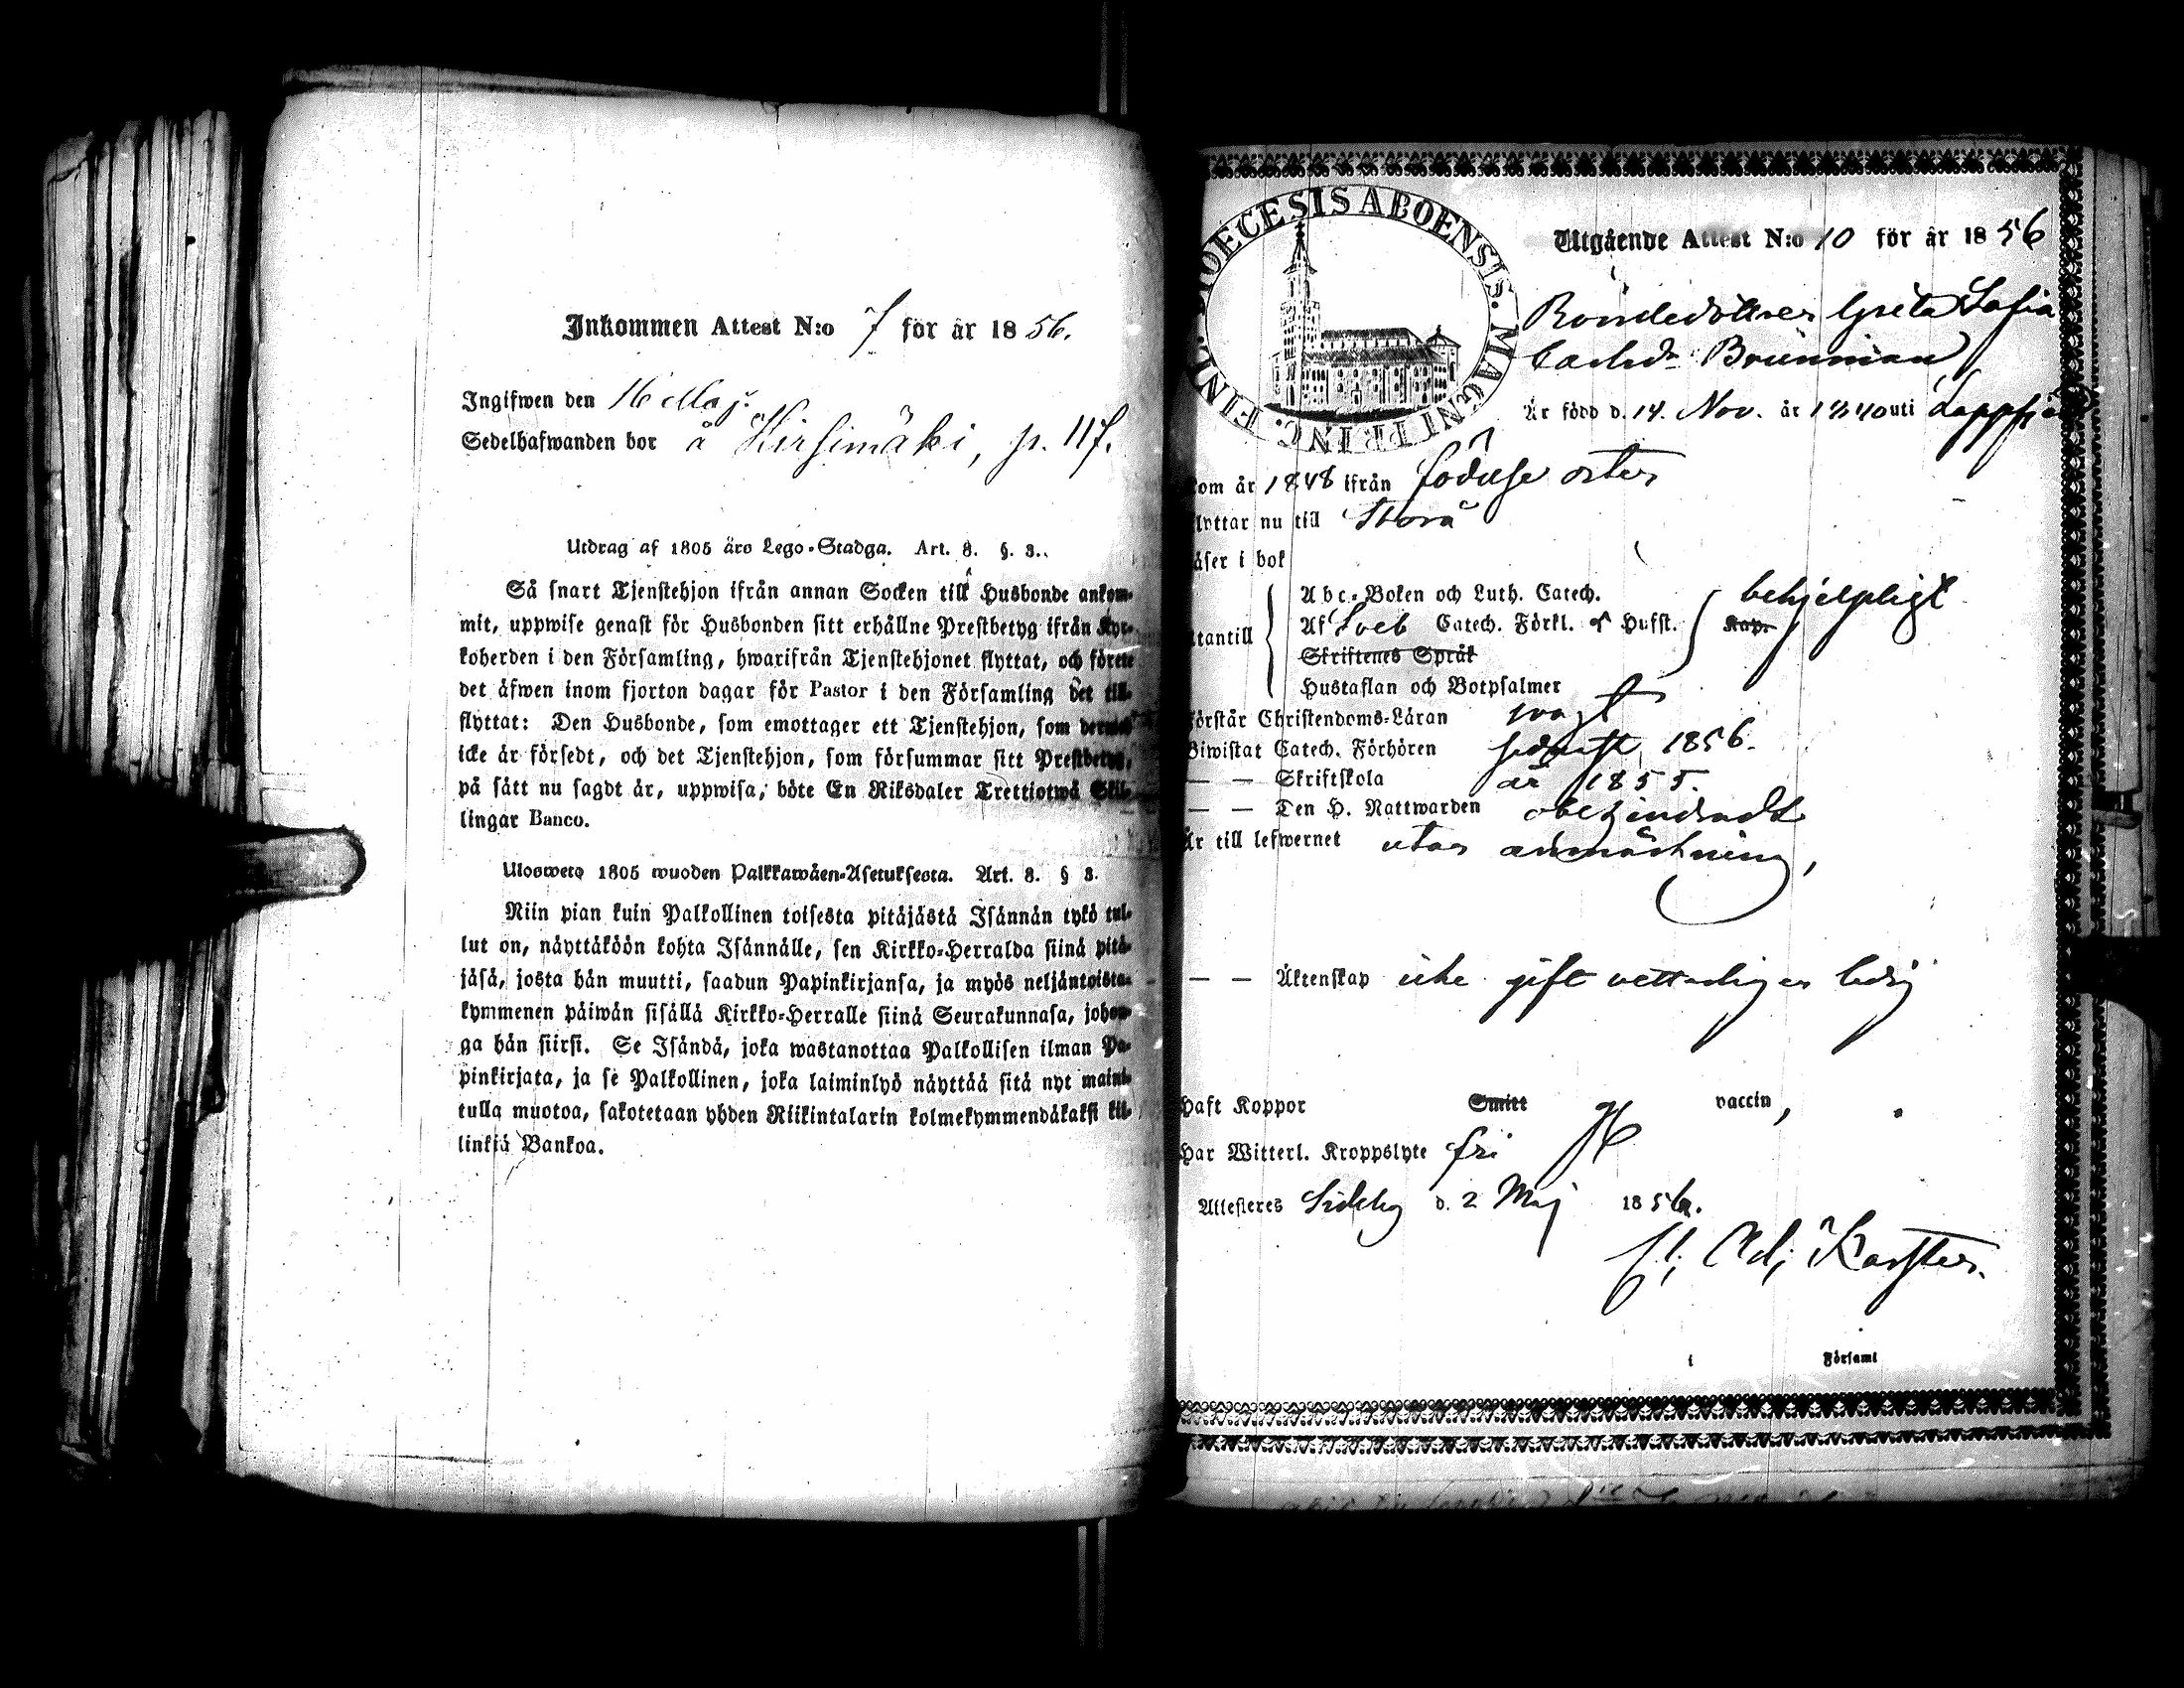 Inkommen Attest N:o 7 för år 1856.
Ingifwen den 16 Maj.
Sedelhafwanden bor å Kirsimäki, p. 117.
Utdrag af 1805 års Lego-Stadga. Art. 8. §. 3.
Så snart Tjenstehjon ifrån annan Socken till Husbonde ankom-
mit, uppwise genast för Husbonden sitt erhållne Prestbetyg ifrån Kyr-
koherden i den Församling, hwarifrån Tjenstehjonet flyttat, och förete
det äfwen inom fjorton dagar för Pastor i den Församling det till-
flyttat: Den Husbonde, som emottager ett Tjenstehjon, som dermed
icke är försedt, och det Tjenstehjon, som försummar sitt Prestbetyg,
på sätt nu sagdt är, uppwisa, böte En Riksdaler Trettiotwå Skil-
lingar Banco.
Ulosweto 1805 wuoden Palkkawäen-Asetuksesta. Art. 8. § 3.
Niin pian kuin Palkollinen toisesta pitäjästä Isännän tykö tul-
lut on, näyttäköön kohta Isännälle, sen Kirkko-Herralda siinä pitä-
jäsä, josta hän muutti, saadun Papinkirjansa, ja myös neljäntoista-
kymmenen päiwän sisällä Kirkko-Herralle siinä Seurakunnasa, johon-
ga hän siirsi. Se Isändä, joka wastanottaa Palkollisen ilman Pa-
pinkirjata, ja se Palkollinen, joka laiminlyö näyttää sitä nyt maini-
tulla muotoa, sakotetaan yhden Riikintalarin kolmekymmendäkaksi kil-
linkiä Bankoa.
DIOECESIS ABOENSIS. MAGNI PRINC. FINL.
Utgående Attest N:o 10 för år 1856
Bondedottren Greta Sofia
Carlsdr Brännman
Är född d. 14. Nov. år 1840 uti Lappfjärd
kom år 1848 ifrån födelse orten
flyttar nu till Storå
läser i bok
Abc-Boken och Luth. Catech. behjelpligt
utantill Af Sveb Catech. Förkl. Hufst. Kap.
Skriftenes Språk
Hustaflan och Botpsalmer
Förstår Christendoms-Läran svagt
Biwistat Catech. Förhören sednast 1856.
— — Skriftskola år 1855.
— — Den H. Nattwarden obehindradt
Är till lefwernet utan anmärkning,
— — Äktenskap icke gift vetterligen ledig
Haft Koppor Smitt vaccin,
Har Witterl. Kroppslyte fri
Attesteres Sideby d. 2 Maj 1856.
Adj. Karsten.
i Församl